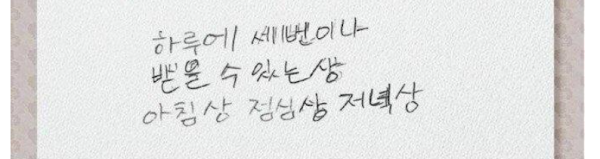 하루에 세번이나
받을 수 있는 상
아침상 점심상 저녁상